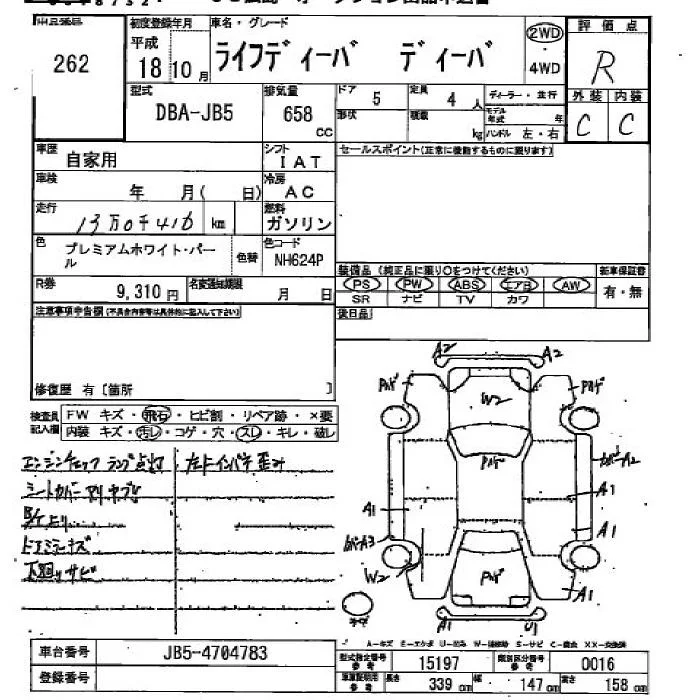 262
初度登録年月
平成
18 10 月
車名・グレード
ライフディーバ ディーバ
2WD
・
4WD
評価点
R
外装 内装
C C
型式
DBA-JB5
排気量
658
CC
ドア 5
定員 4 人
ディーラー・並行
形状
積載 kg
モデル年式 年
ハンドル 左・右
車歴 自家用
シフト
IAT
セールスポイント(正常に機動するものに限ります)
車検 年 月( 日)
冷房
AC
走行 13万0千416 km
燃料
ガソリン
色 プレミアムホワイト・パール
色替
色コード
NH624P
装備品(純正品に限り○をつけてください)
新車保証書
PS PW ABS エアB AW
有・無
SR ナビ TV カワ
R券 9,310 円
名変通知期限 月 日
後日品
注意事項申告欄(不具合内容等は具体的に記入して下さい)
修復歴 有〔箇所 〕
検査員記入欄
FW キズ・飛石・ヒビ割・リペア跡・×要
内装 キズ・汚レ・コゲ・穴・スレ・キレ・破レ
エンジンチェックランプ点灯
シートカバー
ドアミラーキズ
下廻りサビ
A2 A2
W2
A1
A1
A1
W2
A1
車台番号 JB5-4704783
登録番号
型式指定番号 参考 15197
類別区分番号 参考 0016
車車証明用 参考
長さ 339 cm
幅 147 cm
高さ 158 cm